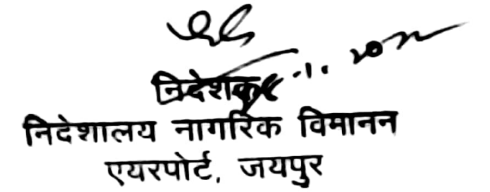 निदेशक
निदेशालय नागरिक विमानन
एयरपोर्ट, जयपुर